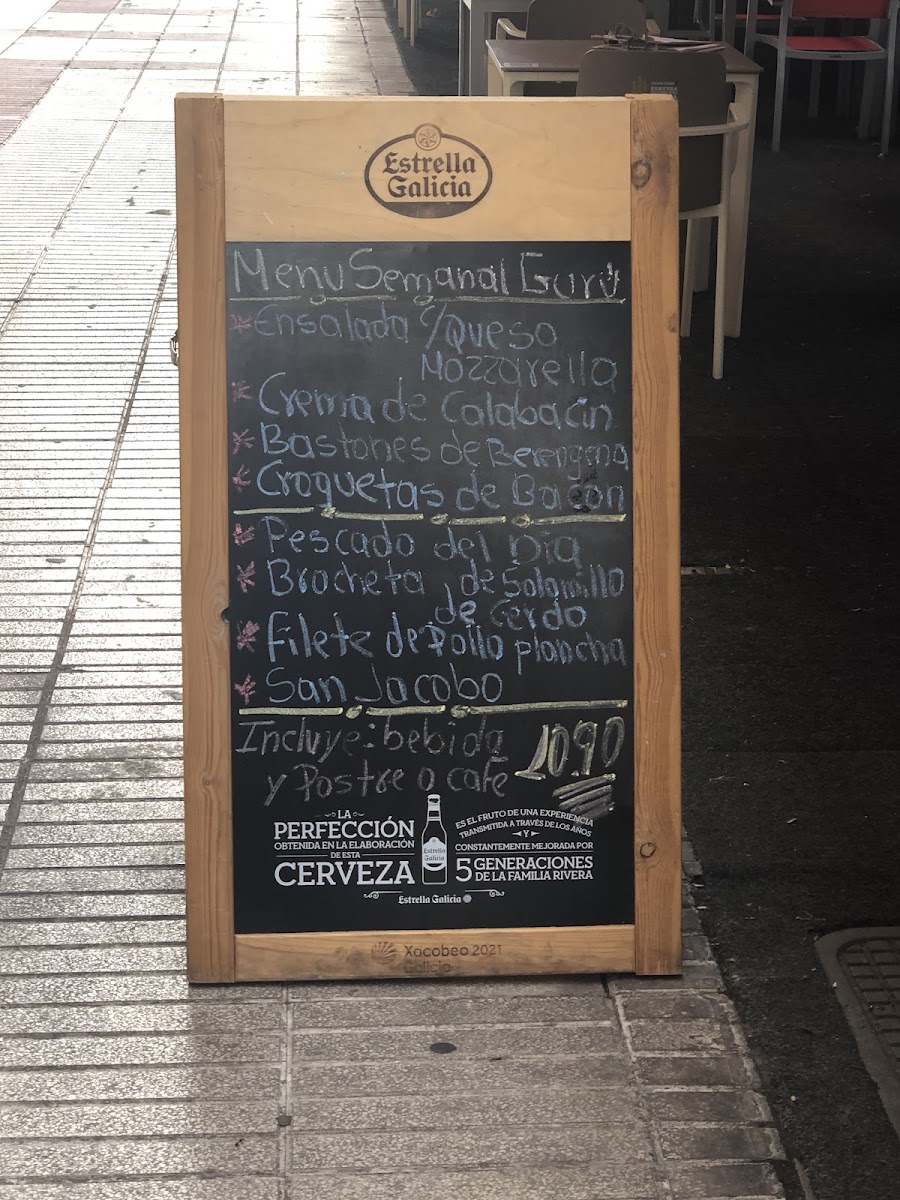 Estrella
Galicia
Menu Semanal Gurú
* Ensalada c/Queso
Mozzarella
* Crema de Calabacín
* Bastones de Berengena
* Croquetas de Bacon
* Pescado del Dia
* Brocheta de Solomillo
de Cerdo
* Filete de Pollo plancha
* San Jacobo
Incluye: bebida
y Postre o café 1090
LA
PERFECCIÓN
OBTENIDA EN LA ELABORACIÓN
DE ESTA
CERVEZA
Estrella
Galicia
ES EL FRUTO DE UNA EXPERIENCIA
TRANSMITIDA A TRAVÉS DE LOS AÑOS
Y
CONSTANTEMENTE MEJORADA POR
5 GENERACIONES
DE LA FAMILIA RIVERA
Estrella Galicia
Xacobeo 2021
Galicia